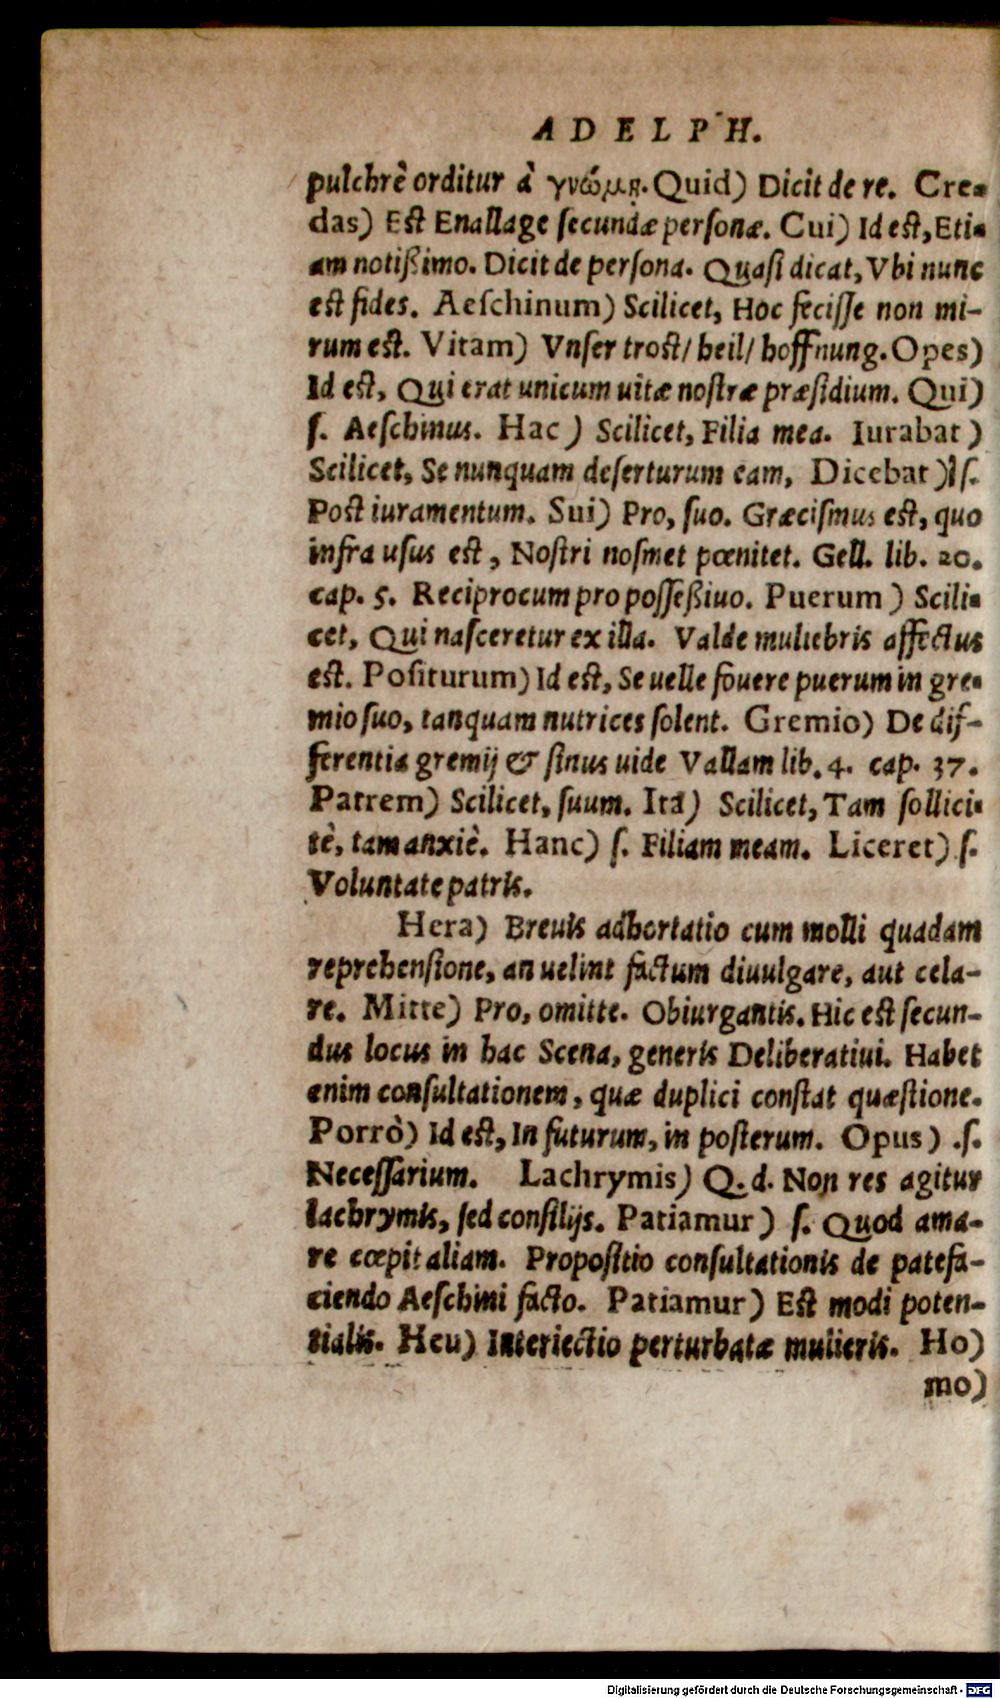 ADELPH.
pulchrè orditur à γνώμῃ. Quid) Dicit de re. Cre-
das) Est Enallage secundæ personæ. Cui) Id est, Eti-
am notißimo. Dicit de persona. Quasi dicat, Vbi nunc
est fides. Aeschinum) Scilicet, Hoc fecisse non mi-
rum est. Vitam) Vnser trost/ heil/ hoffnung. Opes)
Id est, Qui erat unicum uitæ nostræ præsidium. Qui)
s. Aeschinus. Hac) Scilicet, Filia mea. Iurabat)
Scilicet, Se nunquam deserturum eam, Dicebat) s.
Post iuramentum. Sui) Pro, suo. Græcismus est, quo
infra usus est, Nostri nosmet pœnitet. Gell. lib. 20.
cap. 5. Reciprocum pro posseßiuo. Puerum) Scili-
cet, Qui nasceretur ex illa. Valde muliebris affectus
est. Positurum) Id est, Se uelle fouere puerum in gre-
mio suo, tanquam nutrices solent. Gremio) De dif-
ferentia gremij & sinus uide Vallam lib. 4. cap. 37.
Patrem) Scilicet, suum. Ita) Scilicet, Tam sollici-
tè, tam anxiè. Hanc) s. Filiam meam. Liceret) s.
Voluntate patris.
Hera) Breuis adhortatio cum molli quadam
reprehensione, an uelint factum diuulgare, aut cela-
re. Mitte) Pro, omitte. Obiurgantis. Hic est secun-
dus locus in hac Scena, generis Deliberatiui. Habet
enim consultationem, quæ duplici constat quæstione.
Porrò) Id est, In futurum, in posterum. Opus) .s.
Necessarium. Lachrymis) Q. d. Non res agitur
lachrymis, sed consilijs. Patiamur) s. Quod ama-
re cœpit aliam. Propositio consultationis de patefa-
ciendo Aeschini facto. Patiamur) Est modi poten-
tialis. Heu) Interiectio perturbatæ mulieris. Ho)
mo)
Digitalisierung gefördert durch die Deutsche Forschungsgemeinschaft - DFG